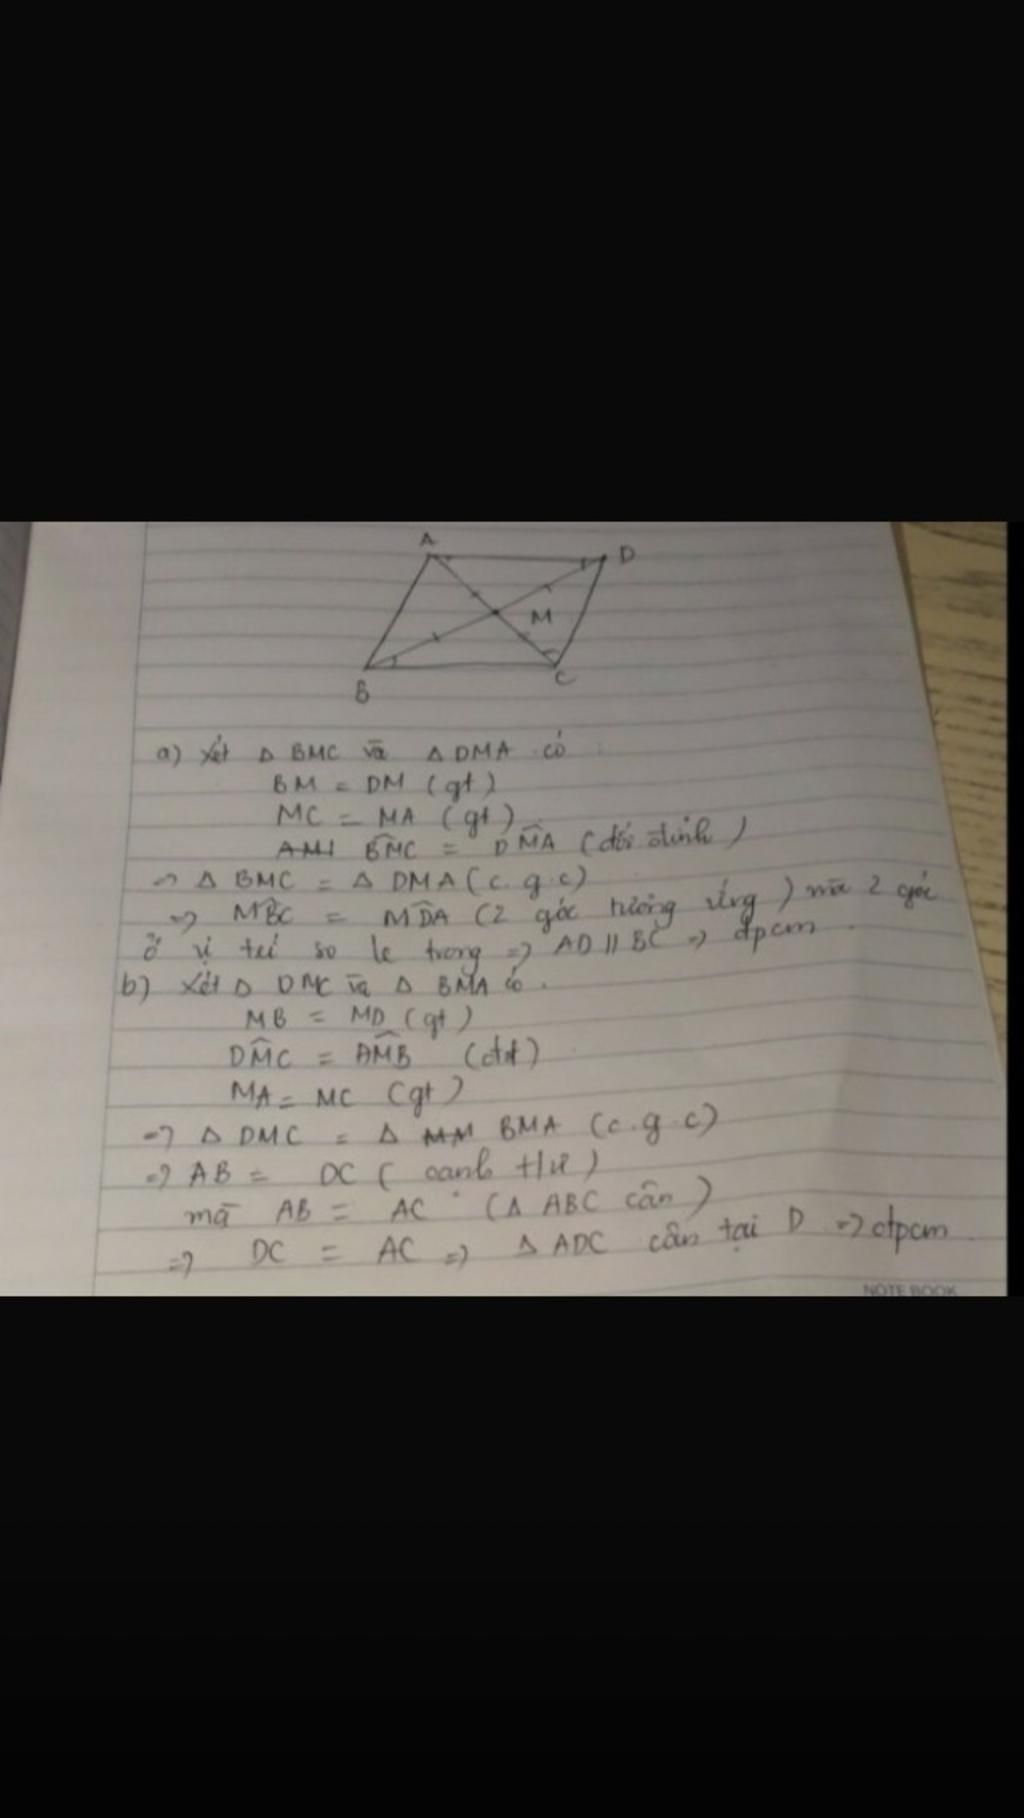 A
D
M
B
C
a) Xét Δ BMC và Δ DMA có :
BM = DM (gt)
MC = MA (gt)
BMC = DMA (đối đỉnh)
=> Δ BMC = Δ DMA (c.g.c)
=> MBC = MDA (2 góc tương ứng) mà 2 góc
ở vị trí so le trong => AD // BC => đpcm .
b) Xét Δ DMC và Δ BMA có .
MB = MD (gt)
DMC = AMB (đđ)
MA = MC (gt)
=> Δ DMC = Δ BMA (c.g.c)
=> AB = DC ( cạnh t/ư )
mà AB = AC (Δ ABC cân)
=> DC = AC => Δ ADC cân tại D => đpcm .
NOTE BOOK